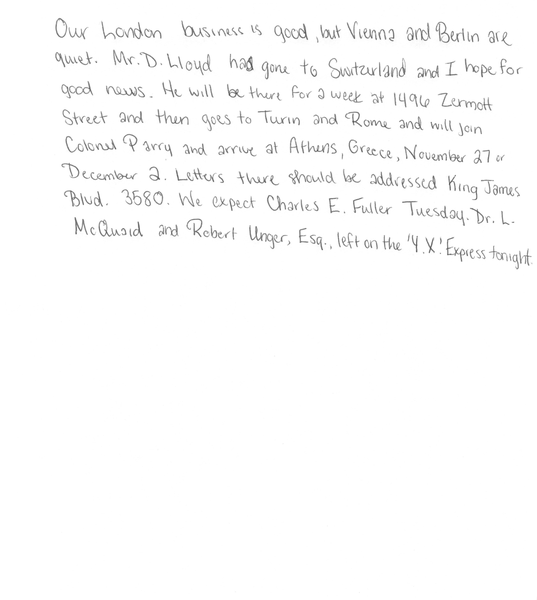 Our London business is good, but Vienna and Berlin are
quiet. Mr. D. Lloyd has gone to Switzurland and I hope for
good news. He will be there for a week at 1496 Zermott
Street and then goes to Turin and Rome and will join
Colonel Parry and arrive at Athens, Greece, November 27 or
December 2. Letters there should be addressed King James
Blvd. 3580. We expect Charles E. Fuller Tuesday. Dr. L.
McQuaid and Robert Unger, Esq., left on the 'Y.X.' Express tonight.